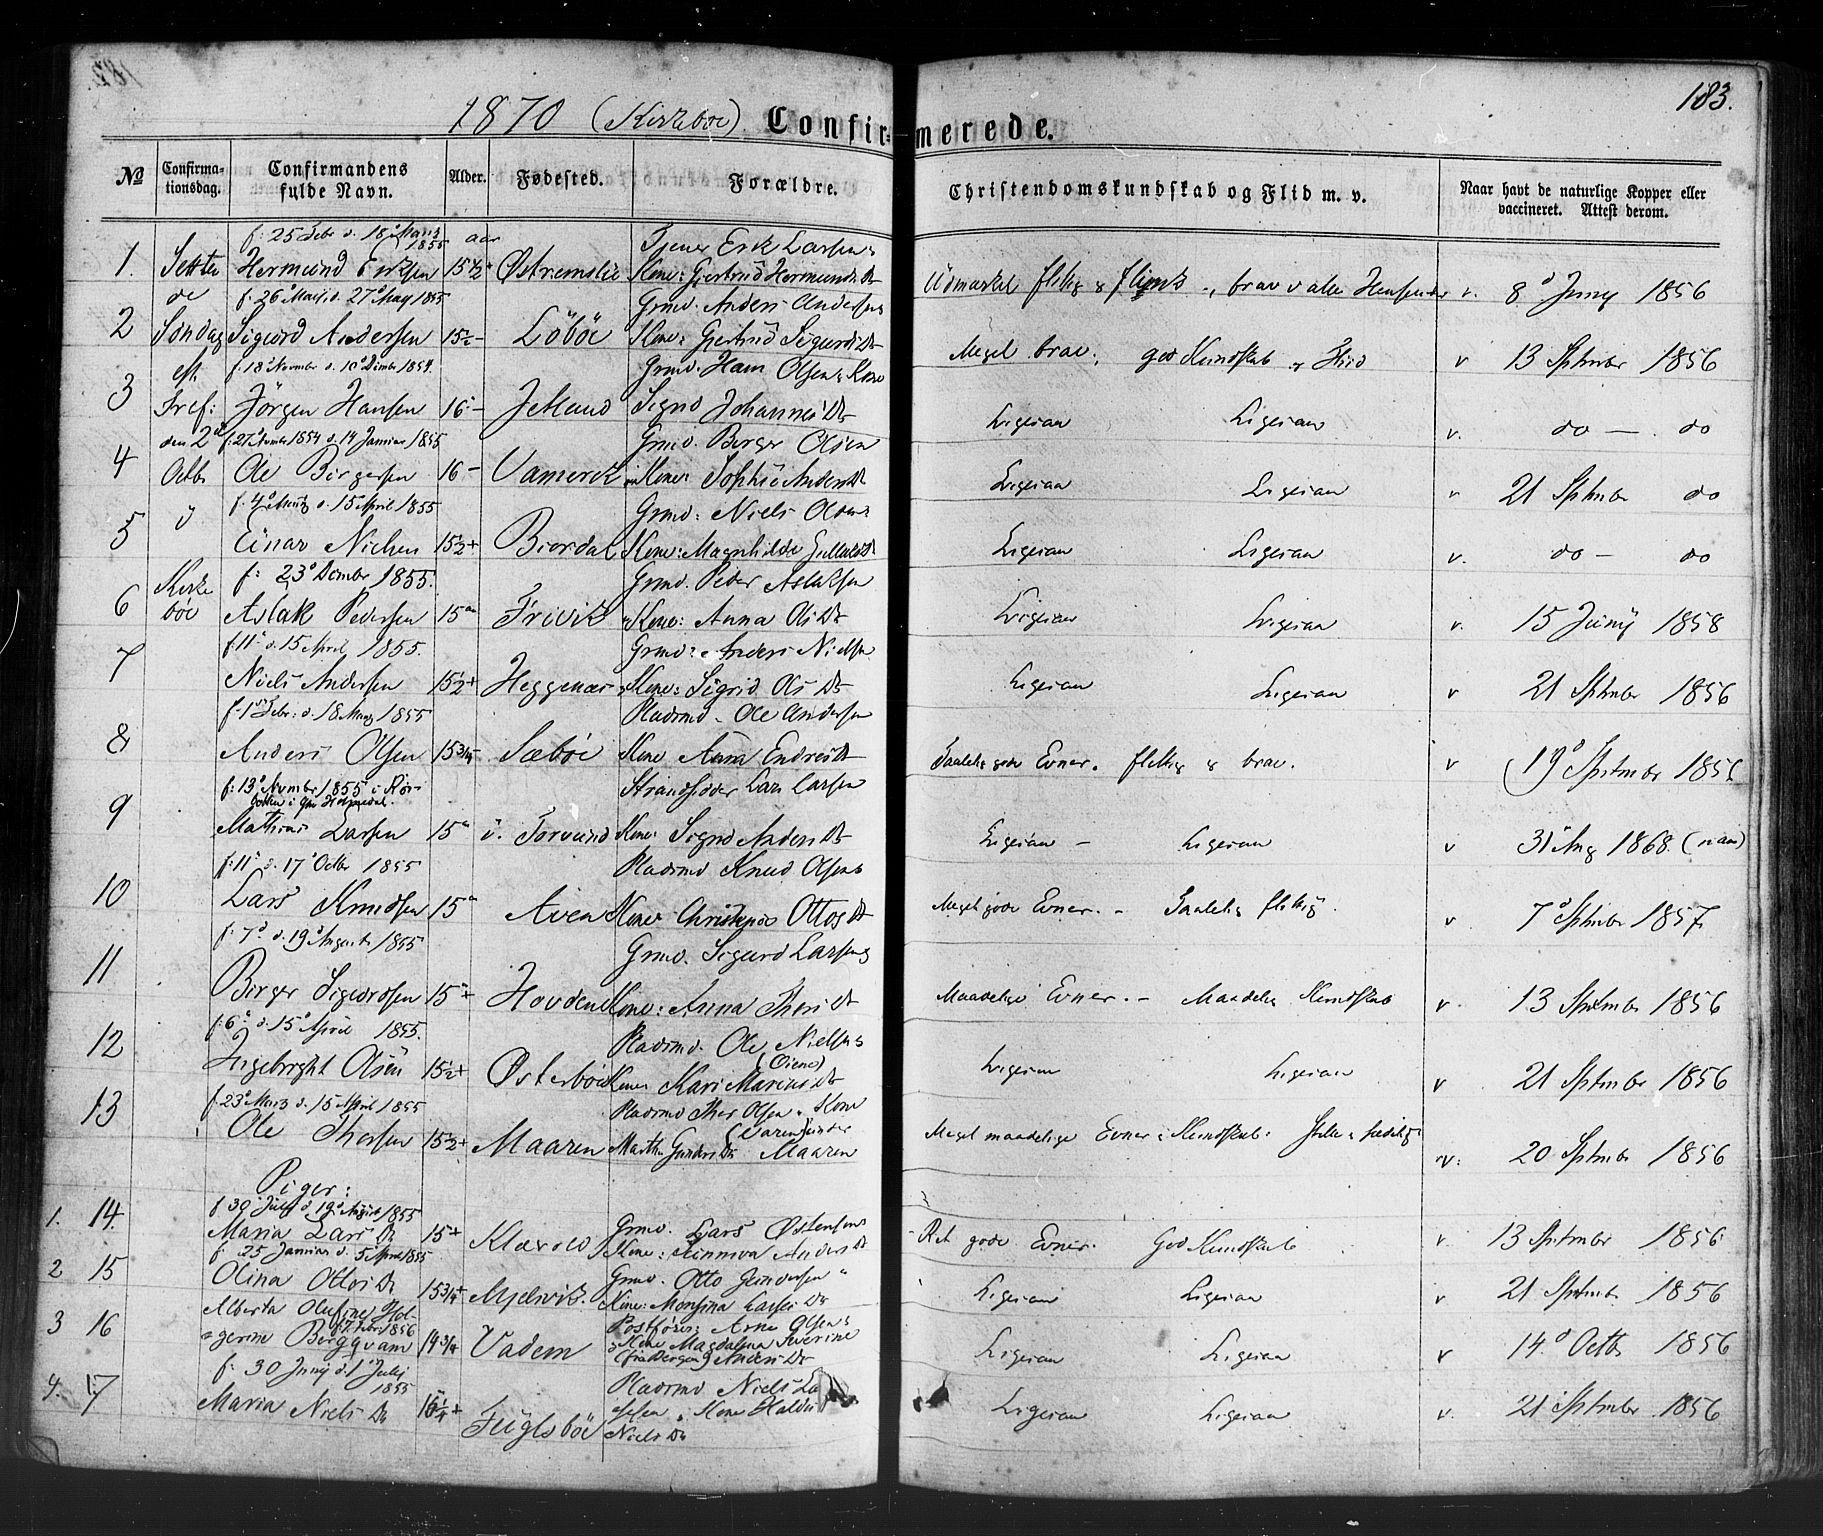 183.
1870 (Kirkeboe) Confirmerede.
№ Confirmationsdag. Confirmandens fulde Navn. Alder. Fødested. Forældre. Christendomskundskab og Flid m. v. Naar havt de naturlige Kopper eller vaccineret. Attest derom.
f: 25 Febr d. 18 Marts 1855 aar Erik Larsen
1. Hermund Eriksen 15½ Kone: Gjertrud Hermunds Dr flittig & flink brav v. 8de Juny 1856
f. 26 Marts d. 27 May 1855 Grmd. Anders Andersen
2 Søndag Sigurd Andersen 15½ Løbøe Kone: Gjertrud Sigurds Dr Meget brav. god Kundskab og Flid v 13 Sptmbr 1856
eft. f. 18 Novmbr d. 10 Dcmbr 1854. Grmd. Hans Olsen & Kone
3 Tref: Jørgen Hansen 16 - Signe Johannes Dr Ligesaa Ligesaa v. do - do
den 2d f. 27 Novmbr 1854 d. 14 Januar 1855 Grmd. Børger Olsen
4 Octbr Ole Børgersen 16 - Vamerek Kone: Sophie Anders Dr Ligesaa Ligesaa v 21 Sptmbr do
i f. 4 d. 15 April 1855 Grmd: Niels Olsen
5 Einar Nielsen 15½ + Biordal Kone: Magnhilde Ligesaa Ligesaa v. do - do
Kirke f: 23 Dcmbr 1855. Grmd. Peder Aslaksen
6 bøe Aslak Pedersen 15 Frivik Kone: Anna Ols Dr Ligesaa Ligesaa v. 15 Juny 1858
f. 11 d. 15 April 1855. Grmd: Anders Nielsen
7 Niels Andersen 15½ + Heggenæs Kone: Sigrid Ols Dr Ligesaa Ligesaa v 21 Sptmbr 1856
f. 1 Febr: d. 18 Marts 1855 Pladsmd. Ole Andersen
8 Anders Olsen 15¾ Sæbøe Kone Anna Endres Dr Taalelig gode Evner. flittig & brav. v 19 Sptmbr 1856
f: 13 Novmber 1855 i Strandsidder Lars Larsen
9 Mathias Larsen 15 v. Torvund Kone: Signe Anders Dr Ligesaa - Ligesaa v 31 Aug 1868.
f: 11 d. 17 Octbr 1855 Pladsmd Knud Olsen
10 Lars Knudsen 15 Aven Kone Ottos Dr Meget gode Evner. - Taalelig flittig. v 7 Sptmbr 1857
f: 7 d. 19 August 1855 Grmd. Sigurd Larsen
11 Børger Sigurdsen 15 + Hovden Kone: Anna Thors Dr Maadelige Evner. - Maadelig Kundskab v. 13 Sptmbr 1856
f: 6 d. 15 April 1855. Pladsmd. Ole Nielsen
12 Ingebright Olsen 15½ + Østerbøe Kone Kari Marcus Dr Ligesaa Ligesaa v 21 Sptmbr 1856
f. 23 Marts d. 15 April 1855 Pladsmd Thor Olsen & Kone
13 Ole Thorsen 15½ + Maaren Marthe Gunders Dr Maaren Meget maadelige Evner & Kundskab: Stille & sædelig v: 20 Sptmbr 1856
Piger:
f. 30 July d. 19 August 1855
1. 14. Maria Lars Dr 15 + Klævold Grmd. Lars Østensen Kone: Sinneva Anders Dr Ret gode Evner. God Kundskab v. 13 Sptmbr 1856
f 25 Januar d. 5 1855.
2 15 Olina Ottos Dr 15¾ + Mjelvik. Grmd. Otto Gundersen Kone: Monsina Lasses Dr Ligesaa Ligesaa v 21 Sptmbr 1856
Alberta Olufine Hol-
3 16 gerine Bergqvam 14¾ Vadem Postfører Arne Olsen & Kone Magdalena Severine (fra Bergen) Anders Dr Ligesaa Ligesaa v 14 Octbr 1856
f: 30 Juny d. 1 July 1855
4. 17 Maria Niels Dr 15¼ + Fuglsbøe Pladsmd Niels Kone Niels Dr Ligesaa Ligesaa v. 21 Sptmber 1856